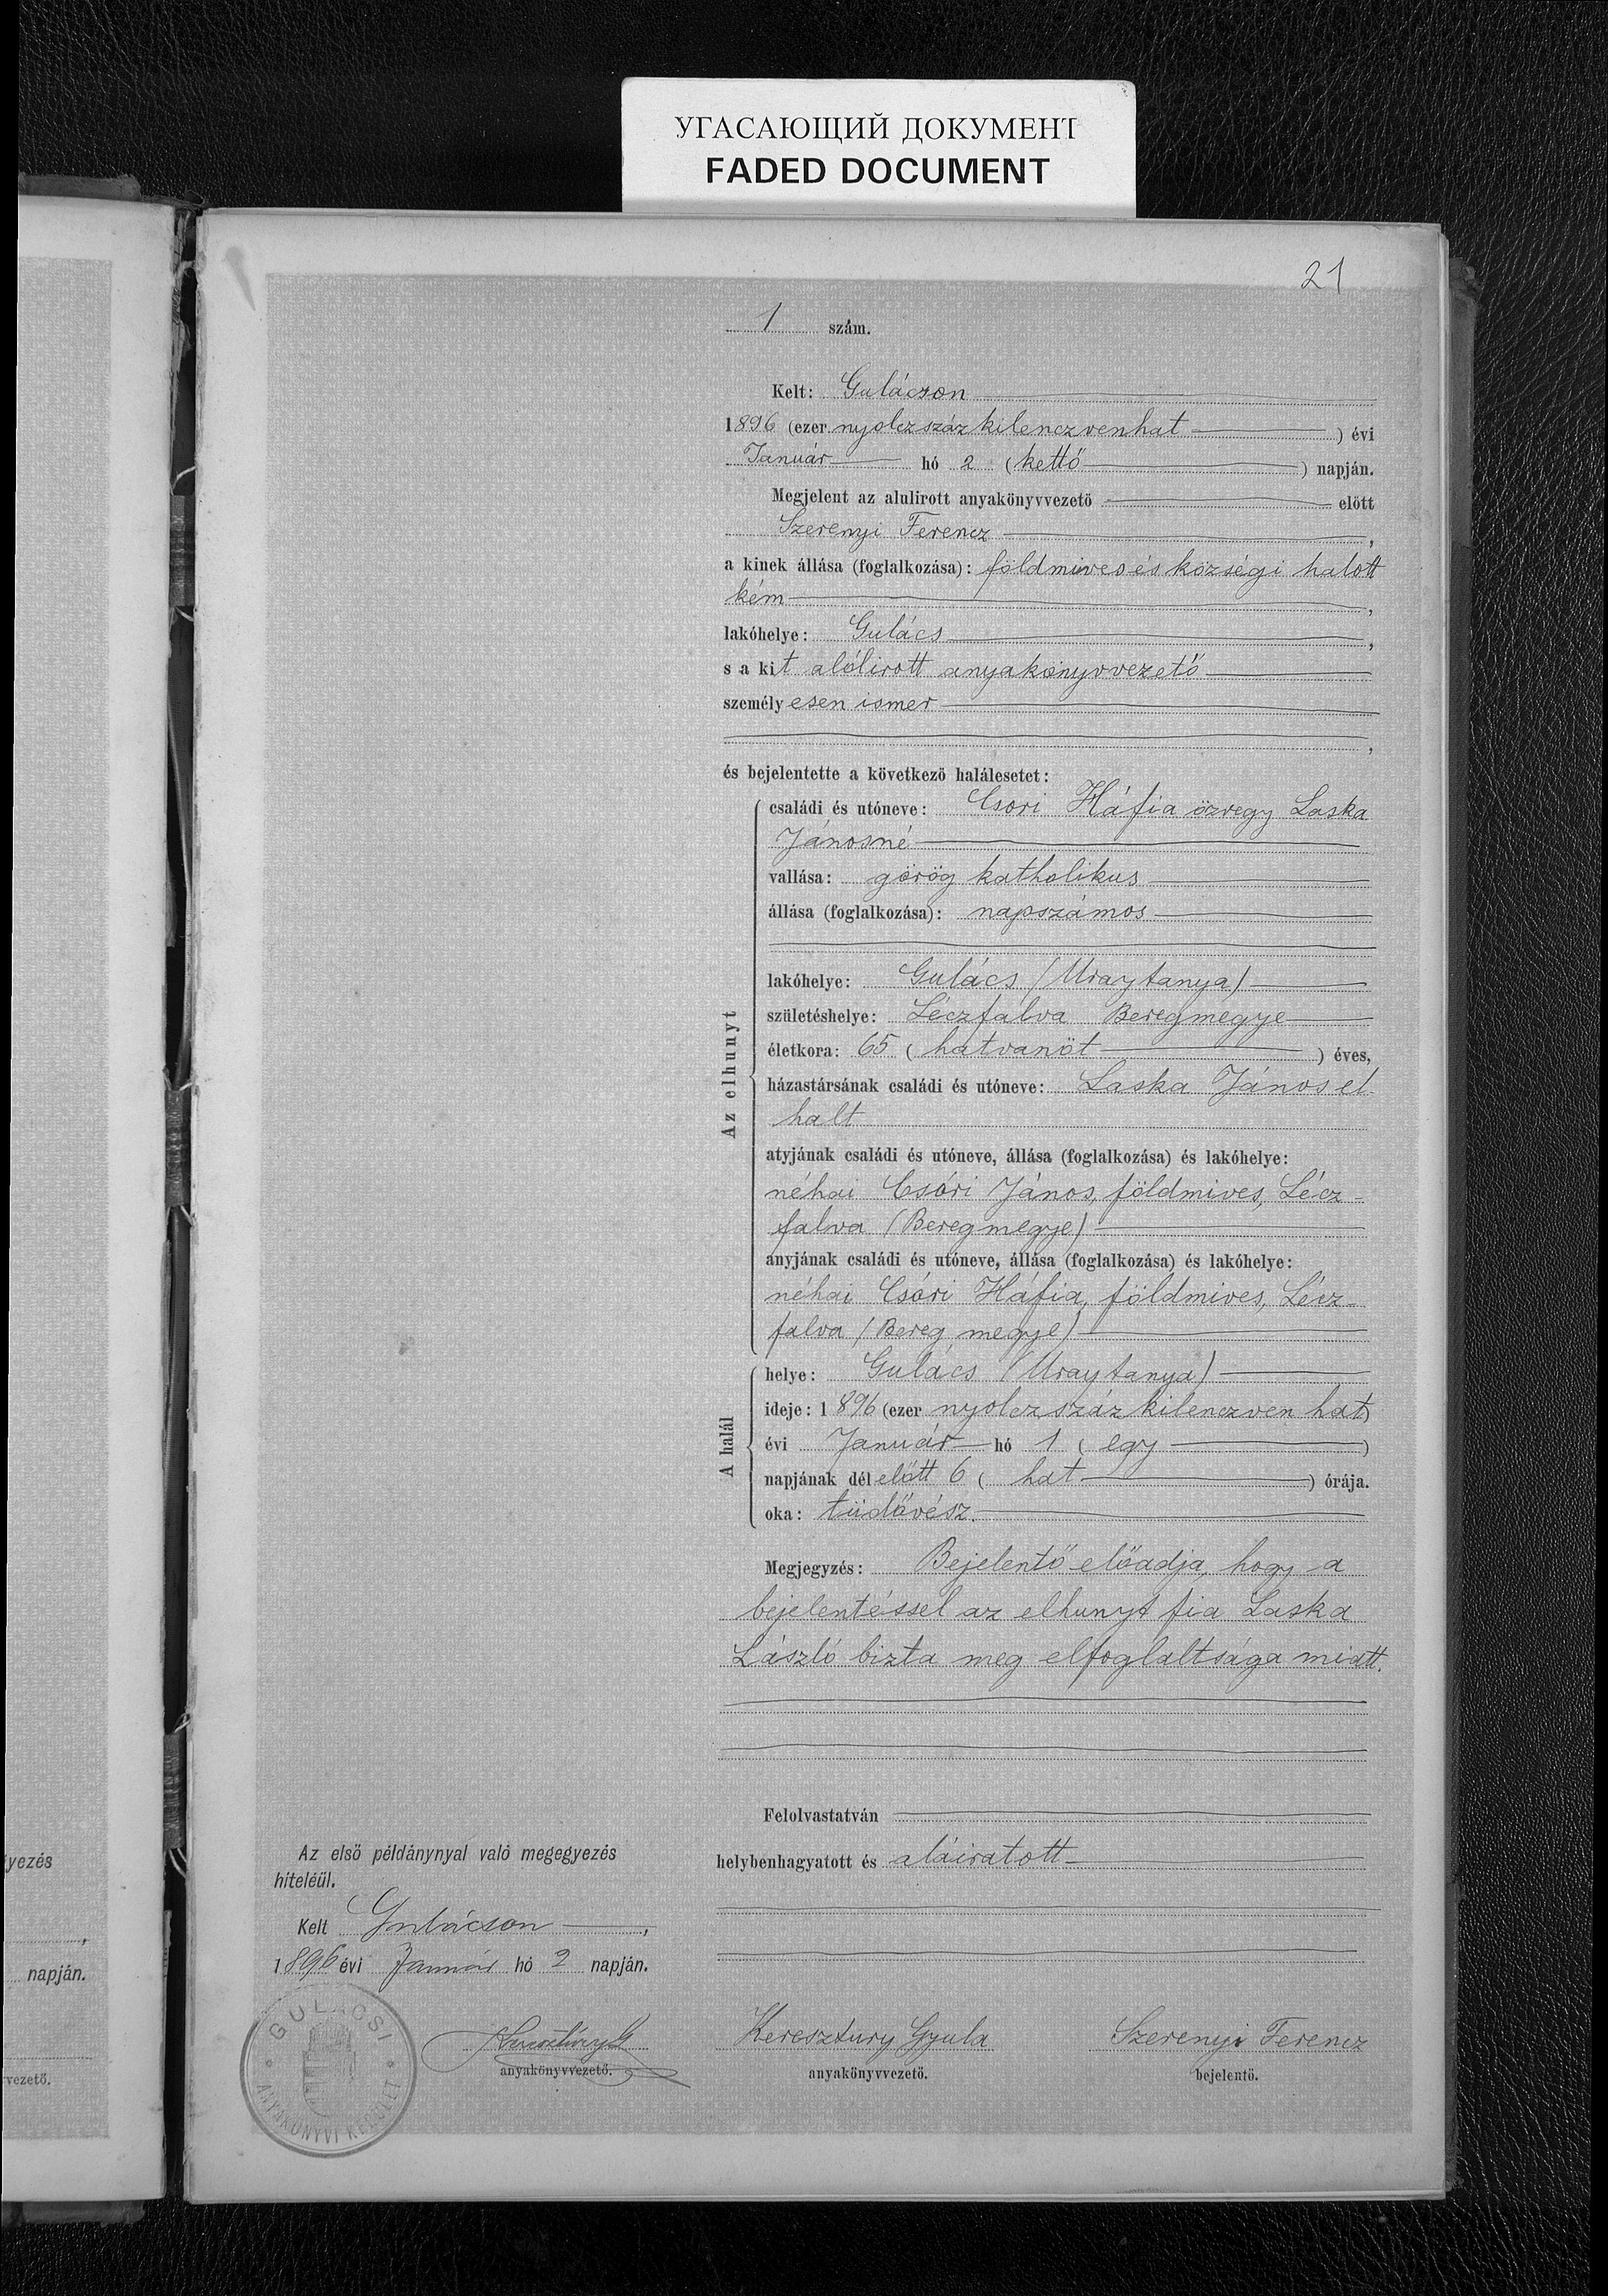 УГАСАЮЩИЙ ДОКУМЕНТ
FADED DOCUMENT
21
1 szám.
Kelt: Gulácson
1896 (ezer nyolczszáz kilenczvenhat) évi
Január hó 2 (kettő) napján.
Megjelent az alulirott anyakönyvvezető előtt
Szerenyi Ferencz,
a kinek állása (foglalkozása): földmives és községi halott
kém,
lakóhelye: Gulács,
s a kit alólirott anyakönyvvezető
személyesen ismer
,
és bejelentette a következő halálesetet:
Az elhunyt
családi és utóneve: Csori Háfia özvegy Laska
Jánosné
vallása: görög katholikus
állása (foglalkozása): napszámos
lakóhelye: Gulács (Uraytanya)
születéshelye: Léczfalva Beregmegye
életkora: 65 (hatvanöt) éves,
házastársának családi és utóneve: Laska János el
halt
atyjának családi és utóneve, állása (foglalkozása) és lakóhelye:
néhai Csóri János, földmives, Lécz-
falva (Beregmegye)
anyjának családi és utóneve, állása (foglalkozása) és lakóhelye:
néhai Csóri Háfia, földmives, Lécz-
falva (Bereg megye)
A halál
helye: Gulács (Uraytanya)
ideje: 1896 (ezer nyolczszáz kilenczven hat)
évi Január hó 1 (egy)
napjának délelőtt 6 (hat) órája.
oka: tüdővész.
Megjegyzés: Bejelentő előadja, hogy a
bejelentéssel az elhunyt fia Laska
László bizta meg elfoglaltsága miatt.
Felolvastatván
helybenhagyatott és aláiratott
Keresztury Gyula
anyakönyvvezető.
Szerenyi Ferencz
bejelentő.
Az első példánynyal való megegyezés
hiteléül.
Kelt Gulácson,
1896 évi Január hó 2 napján.
Keresztury G
anyakönyvvezető.
GULÁCSI
ANYAKÖNYVI KERÜLET
yezés
,
napján.
vezető.